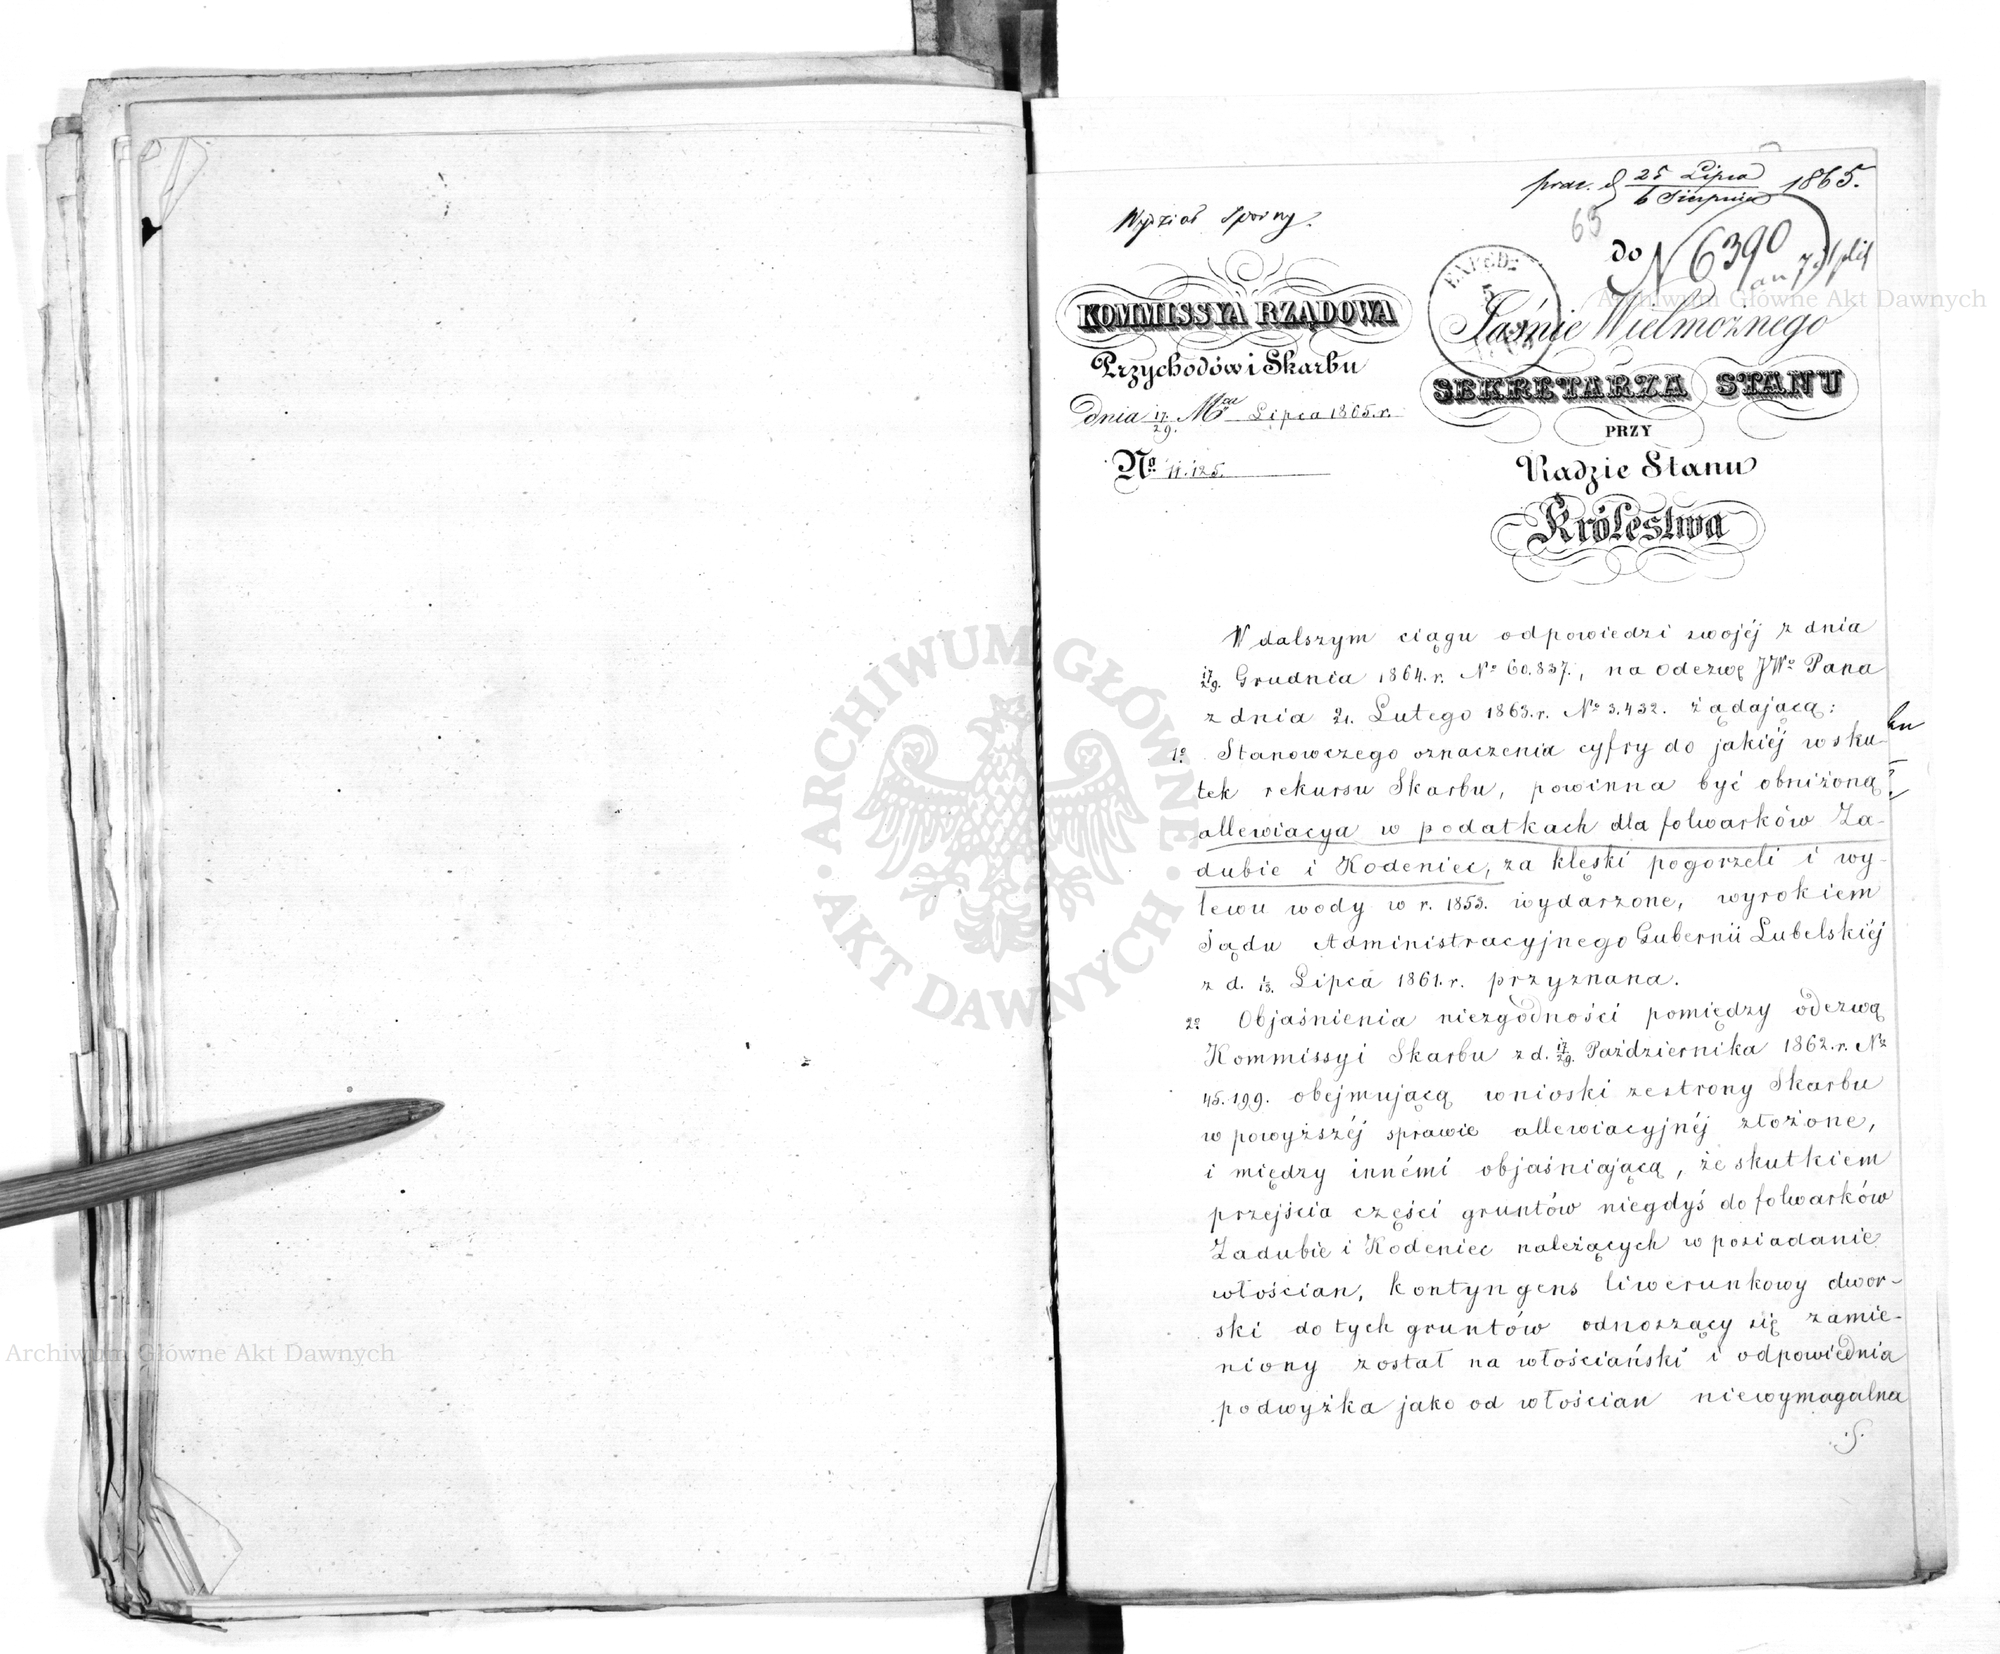 prae. d. 25 Lipca / 6 Sierpnia 1865.
Wydział Sporny.
65
do
N 6390
KOMMISSYA RZĄDOWA
Przychodów i Skarbu
dnia 17/29. Mca Lipca 1865.r.
No 11.125.
EXPED:
5
Jaśnie Wielmożnego
SEKRETARZA STANU
PRZY
Radzie Stanu
Królestwa
W dalszym ciągu odpowiedzi swojéj z dnia
17/29. Grudnia 1864.r. No 60.837., na odezwę JWo Pana
z dnia 21. Lutego 1863.r. No 3.432. żądającą:
1o Stanowczego oznaczenia cyfry do jakiéj w sku-
tek rekursu Skarbu, powinna być obniżoną
allewiacya w podatkach dla folwarków Za-
dubie i Kodeniec, za klęski pogorzeli i wy-
lewu wody w r. 1853. wydarzone, wyrokiem
Sądu Administracyjnego Gubernii Lubelskiéj
z d. 1/13. Lipca 1861.r. przyznana.
2o Objaśnienia niezgodności pomiędzy odezwą
Kommissyi Skarbu z d. 17/29. Października 1862.r. No
45.199. obejmującą wnioski ze strony Skarbu
w powyższéj sprawie allewiacyjnéj złożone,
i między innémi objaśniającą, że skutkiem
przejścia części gruntów niegdyś do folwarków
Zadubie i Kodeniec należących w posiadanie
włościan, kontyngens liwerunkowy dwor-
ski do tych gruntów odnoszący się zamie-
niony został na włościański i odpowiednia
podwyżka jako od włościan niewymagalna
ARCHIWUM GŁÓWNE
AKT DAWNYCH
Archiwum Główne Akt Dawnych
Archiwum Główne Akt Dawnych